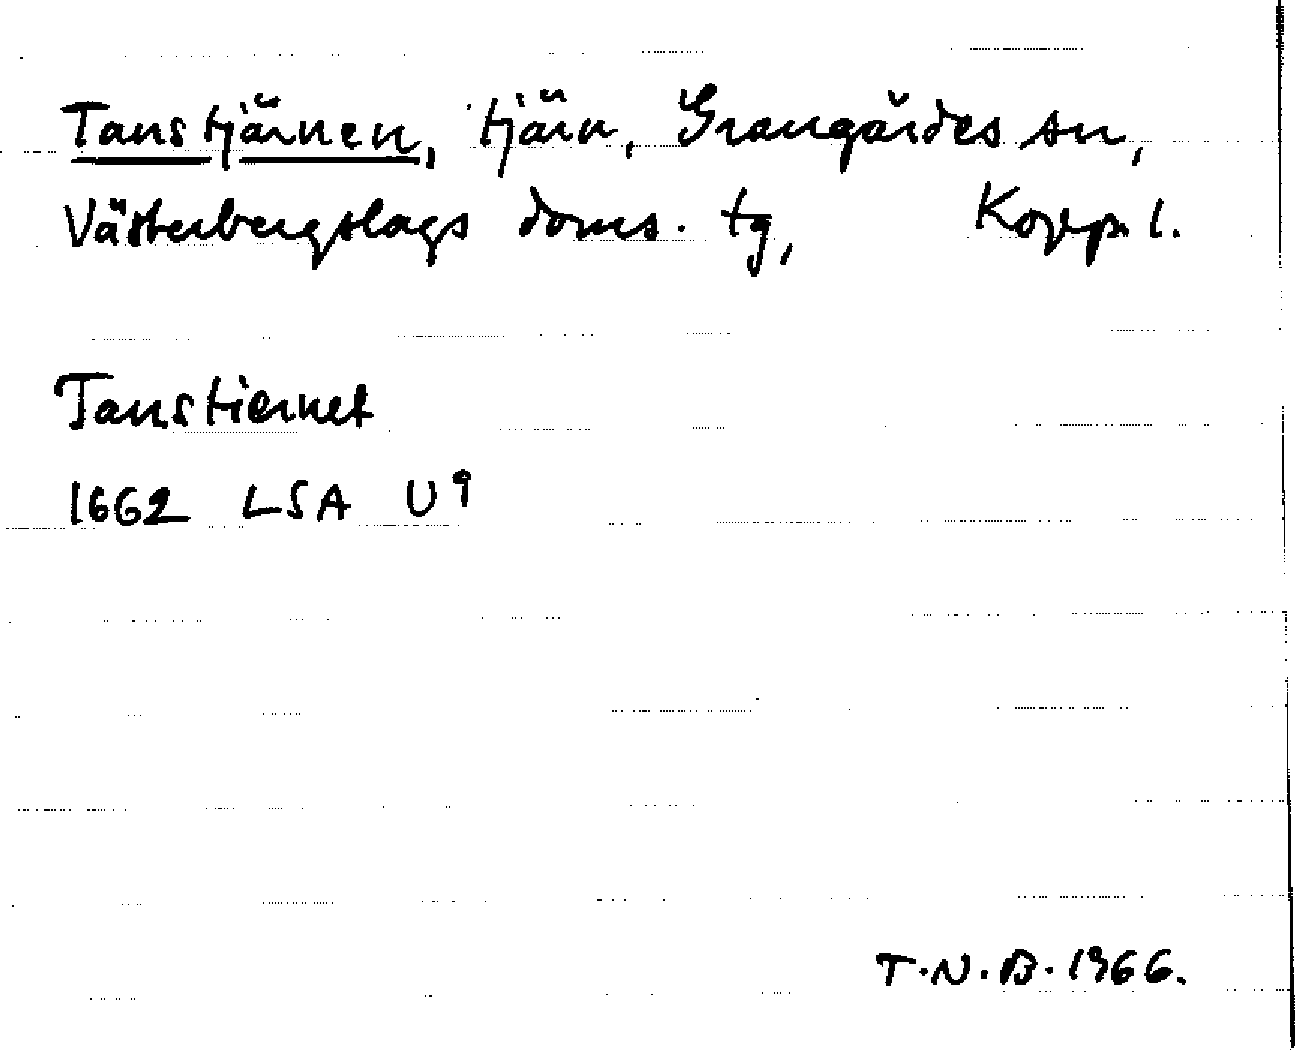 Tanstjärnen, tjärn, Grangärdes sn,
Västerbergslags doms. tg, Kopp. l.
Tanstiernet
1662 LSA U⁹
T.N.B. 1966.